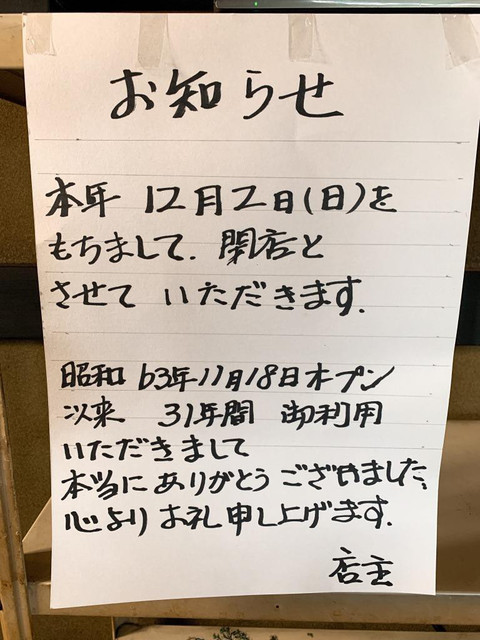 お知らせ
本年 12月2日(日)を
もちまして. 閉店と
させて いただきます.
昭和 63年11月18日オープン
以来 31年間 御利用
いただきまして
本当にありがとうございました、
心よりお礼申し上げます.
店主